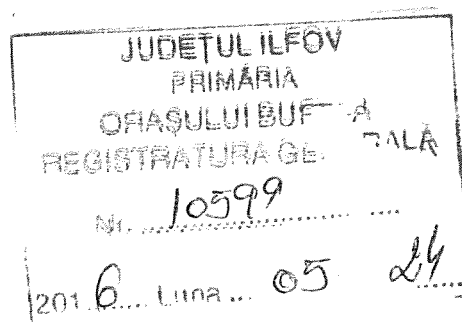 JUDEȚUL ILFOV
PRIMĂRIA
ORAȘULUI
REGISTRATURA
Nr. 10599
2016 Luna 05 24